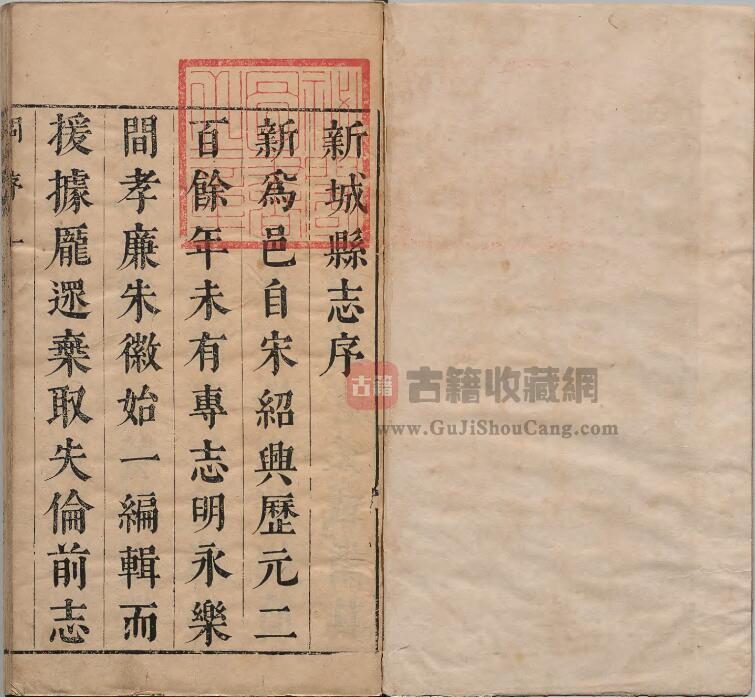 新城縣志序
新爲邑自宋紹興歷元二
百餘年未有專志明永樂
間孝廉朱徽始一編輯而
援據龐遝棄取失倫前志
古籍
古籍收藏網
www.GuJiShouCang.com